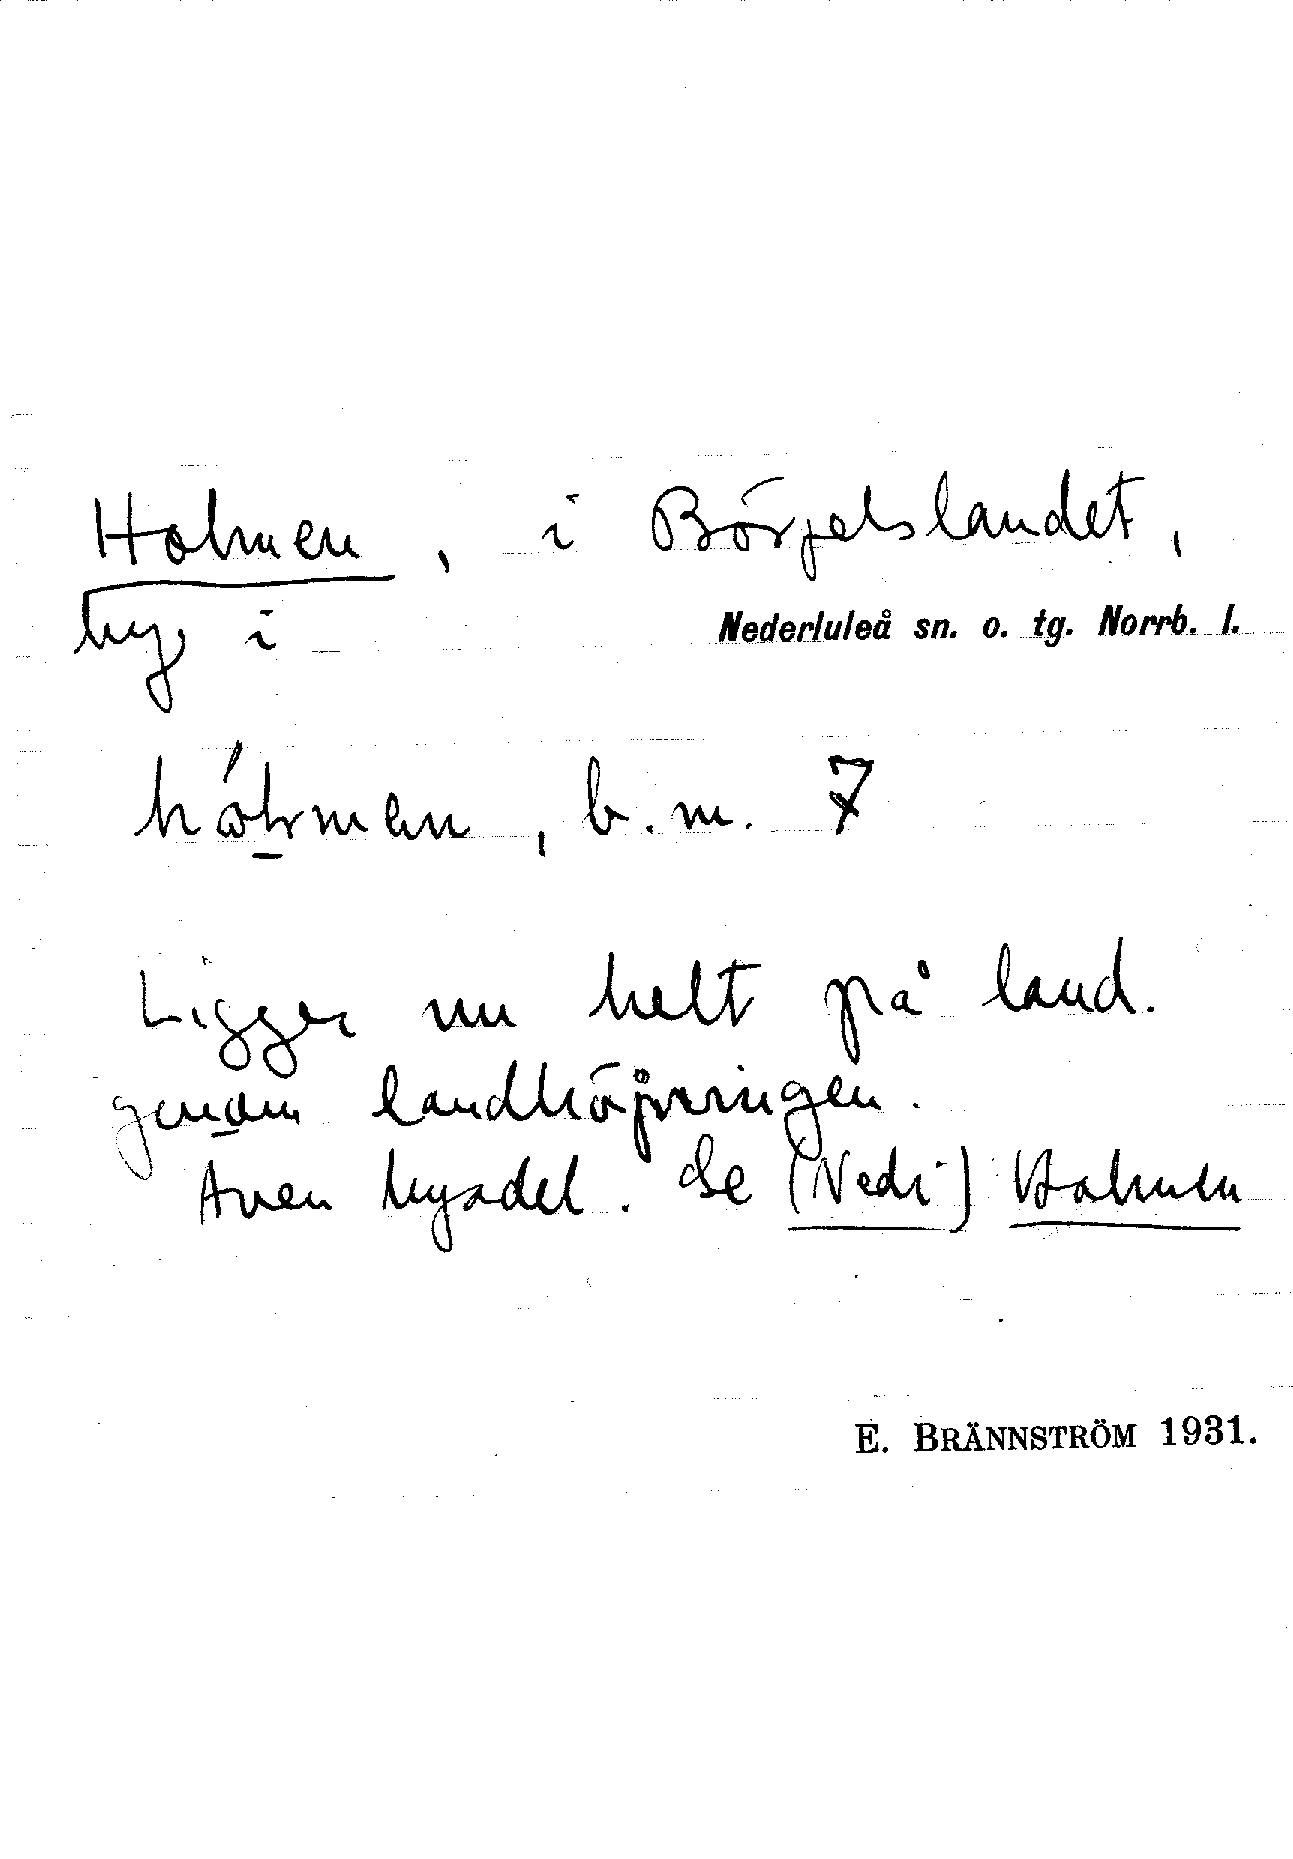 Holmen, i Börjelslandet,
by i Nederluleå sn. o. tg. Norrb. l.
b. m. 7
Ligger nu helt på land.
genom landhöjningen.
Även bysdel. Se (Nedi) Holmen
E. BRÄNNSTRÖM 1931.